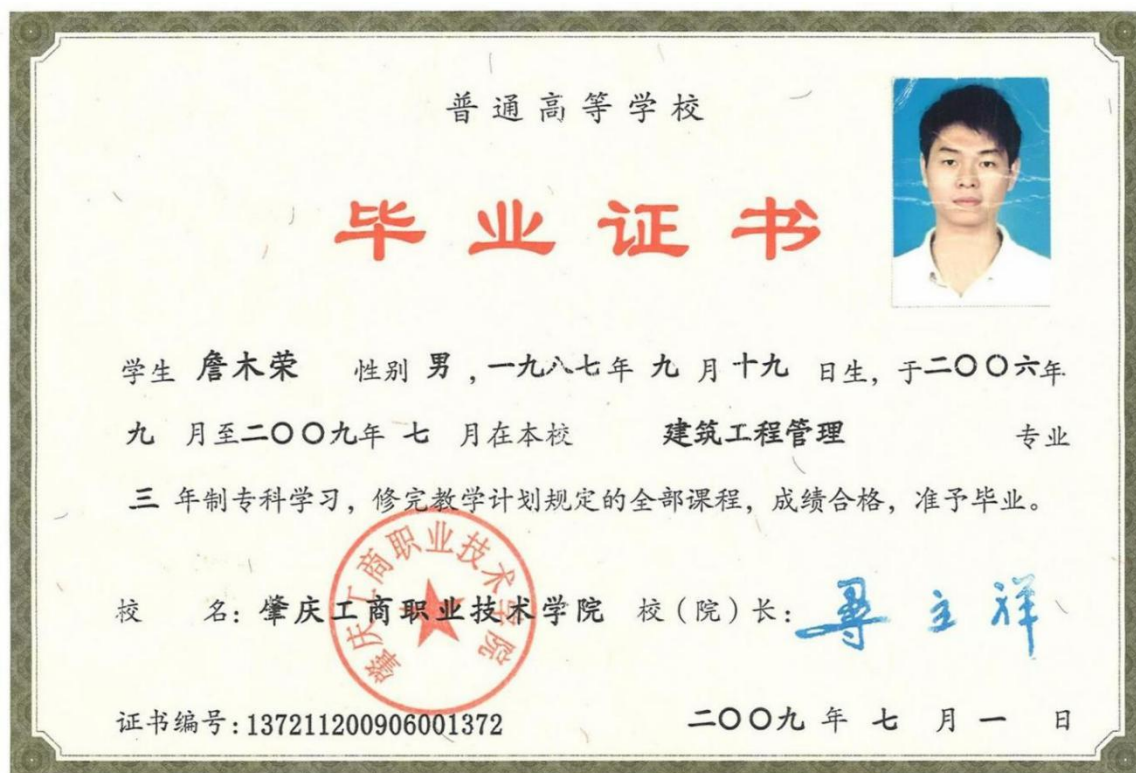 普通高等学校
毕业证书
学生 詹木荣 性别 男，一九八七年 九 月十九 日生，于二〇〇六年
九 月至二〇〇九年 七 月在本校 建筑工程管理 专业
三 年制专科学习，修完教学计划规定的全部课程，成绩合格，准予毕业。
肇庆工商职业技术学院
校 名：肇庆工商职业技术学院 校（院）长：寻立祥
证书编号：137211200906001372 二〇〇九 年 七 月 一 日